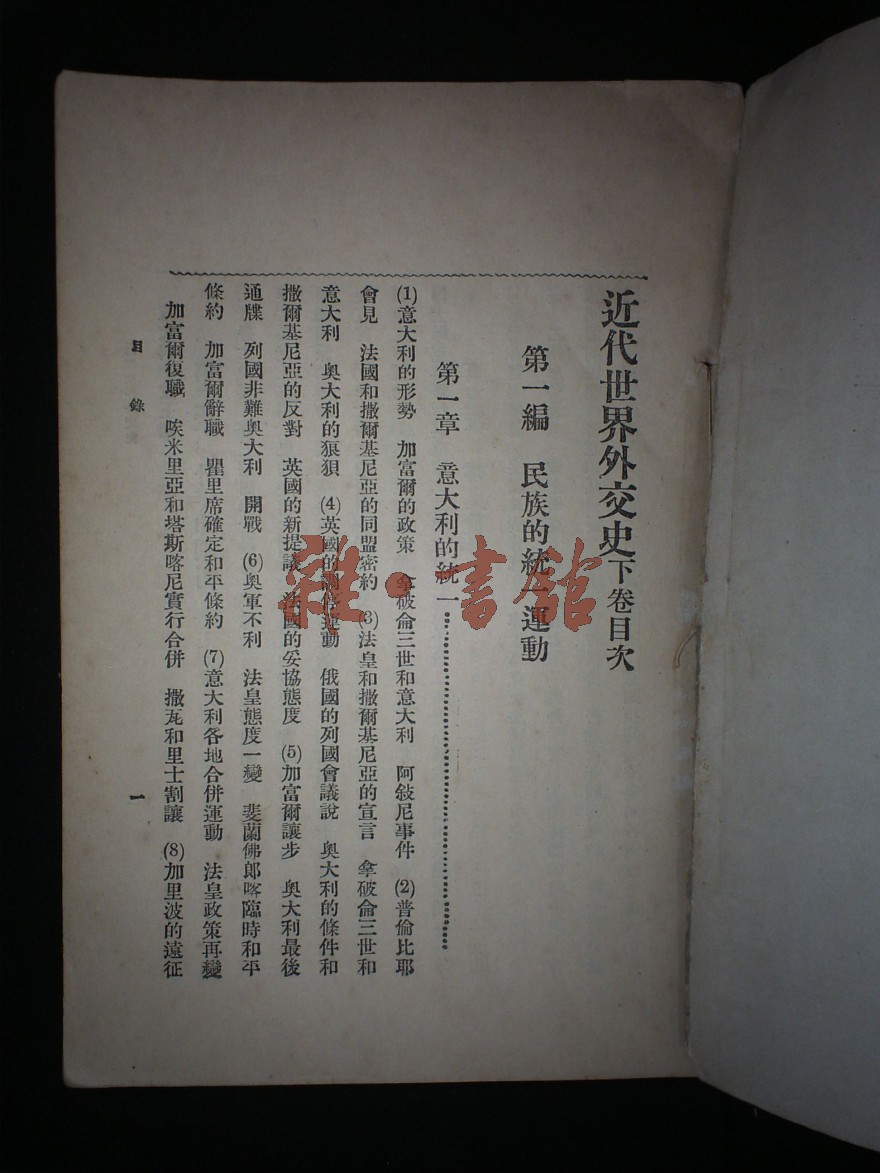 近代世界外交史下卷目次
第一編　民族的統一運動
第一章　意大利的統一
(1)意大利的形勢　加富爾的政策　拿破侖三世和意大利　阿敍尼事件　(2)普倫比耶
會見　法國和撒爾基尼亞的同盟密約　(3)法皇和撒爾基尼亞的宣言　拿破侖三世和
意大利　奧大利的狼狽　(4)英國的調停運動　俄國的列國會議說　奧大利的條件和
撒爾基尼亞的反對　英國的新提議　法國的妥協態度　(5)加富爾讓步　奧大利最後
通牒　列國非難奧大利　開戰　(6)奧軍不利　法皇態度一變　斐蘭佛郎喀臨時和平
條約　加富爾辭職　瞿里席確定和平條約　(7)意大利各地合併運動　法皇政策再變
加富爾復職　唉米里亞和塔斯喀尼實行合併　撒瓦和里士割讓　(8)加里波的遠征
目錄
一
雜·書館